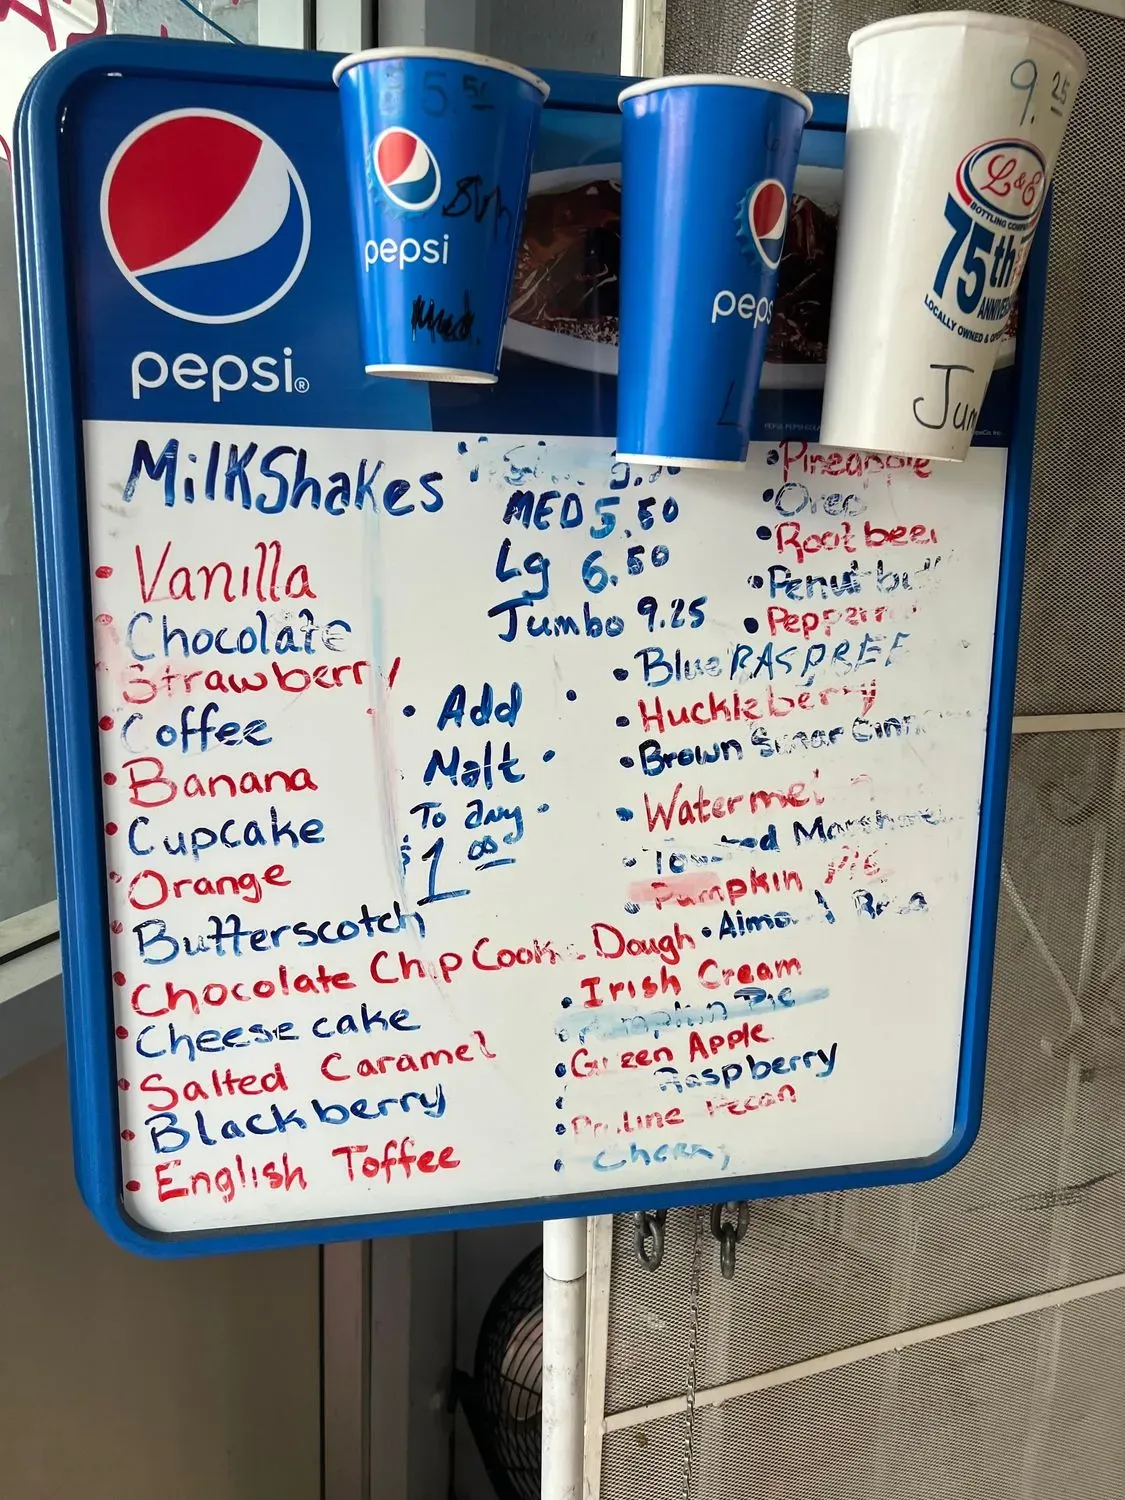 pepsi®
5.50
pepsi
Med.
pepsi
L
9.25
L&E
BOTTLING COMPANY
75th
LOCALLY OWNED &
MilkShakes
MED 5.50
Lg 6.50
Jumbo 9.25
• Vanilla
Chocolate
Strawberry
• Coffee
• Banana
• Cupcake
• Orange
Butterscotch
• Chocolate Chip Cookie Dough
• Cheese cake
• Salted Caramel
• Blackberry
• English Toffee
• Add
Malt •
To any •
$1.00
• Pineapple
• Oreo
• Root beer
• Penut
•
• Blue RASPBEE
• Huckleberry
• Brown Sugar
•
• Marshmel
• Pumpkin Pie
• Almond Roca
• Irish Cream
Pumpkin Pie
• Green Apple
• Raspberry
• Praline Pecan
• Cherry